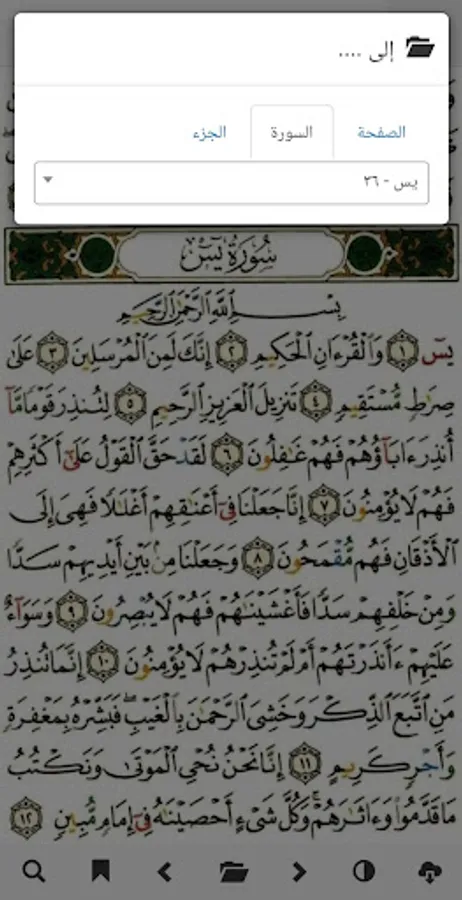 إلى ....
الصفحة
السورة
الجزء
يس - ٣٦
سُورَةُ يسٓ
بِسْمِ اللَّهِ الرَّحْمَٰنِ الرَّحِيمِ
يسٓ ١ وَالْقُرْءَانِ الْحَكِيمِ ٢ إِنَّكَ لَمِنَ الْمُرْسَلِينَ ٣ عَلَىٰ
صِرَٰطٍ مُّسْتَقِيمٍ ٤ تَنزِيلَ الْعَزِيزِ الرَّحِيمِ ٥ لِتُنذِرَ قَوْمًا مَّآ
أُنذِرَ ءَابَآؤُهُمْ فَهُمْ غَٰفِلُونَ ٦ لَقَدْ حَقَّ الْقَوْلُ عَلَىٰٓ أَكْثَرِهِمْ
فَهُمْ لَا يُؤْمِنُونَ ٧ إِنَّا جَعَلْنَا فِىٓ أَعْنَٰقِهِمْ أَغْلَٰلًا فَهِىَ إِلَى
الْأَذْقَانِ فَهُم مُّقْمَحُونَ ٨ وَجَعَلْنَا مِنۢ بَيْنِ أَيْدِيهِمْ سَدًّا
وَمِنْ خَلْفِهِمْ سَدًّا فَأَغْشَيْنَٰهُمْ فَهُمْ لَا يُبْصِرُونَ ٩ وَسَوَآءٌ
عَلَيْهِمْ ءَأَنذَرْتَهُمْ أَمْ لَمْ تُنذِرْهُمْ لَا يُؤْمِنُونَ ١٠ إِنَّمَا تُنذِرُ
مَنِ اتَّبَعَ الذِّكْرَ وَخَشِىَ الرَّحْمَٰنَ بِالْغَيْبِ ۖ فَبَشِّرْهُ بِمَغْفِرَةٍ
وَأَجْرٍ كَرِيمٍ ١١ إِنَّا نَحْنُ نُحْىِ الْمَوْتَىٰ وَنَكْتُبُ
مَا قَدَّمُوا۟ وَءَاثَٰرَهُمْ ۚ وَكُلَّ شَىْءٍ أَحْصَيْنَٰهُ فِىٓ إِمَامٍ مُّبِينٍ ١٢